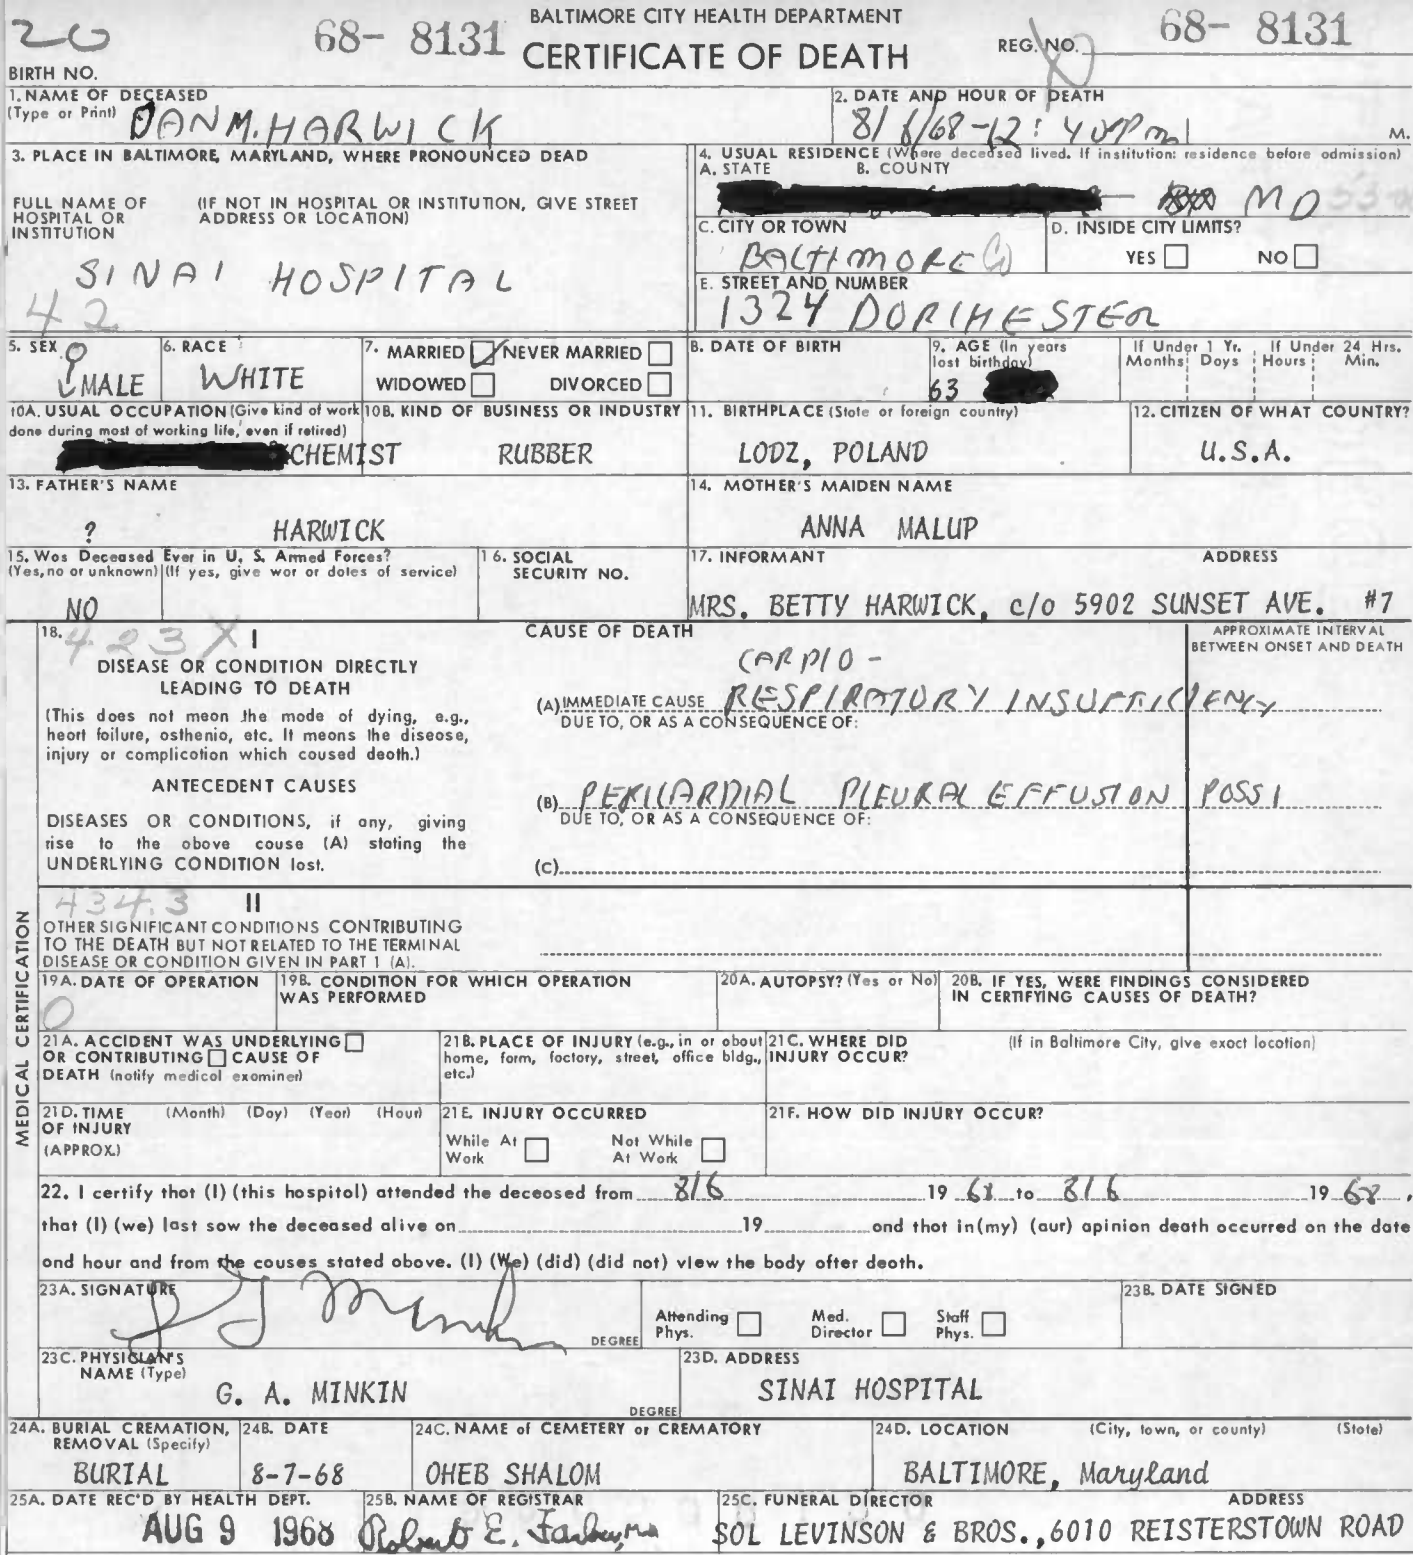 20
68- 8131
BALTIMORE CITY HEALTH DEPARTMENT
CERTIFICATE OF DEATH
REG. NO. 68- 8131
BIRTH NO.
1. NAME OF DECEASED
(Type or Print) DAN M. HARWICK
2. DATE AND HOUR OF DEATH
8/6/68-12:40 PM M.
3. PLACE IN BALTIMORE, MARYLAND, WHERE PRONOUNCED DEAD
FULL NAME OF HOSPITAL OR INSTITUTION
(IF NOT IN HOSPITAL OR INSTITUTION, GIVE STREET ADDRESS OR LOCATION)
SINAI HOSPITAL
42
4. USUAL RESIDENCE (Where deceased lived. If institution: residence before admission)
A. STATE B. COUNTY
MD
C. CITY OR TOWN
BALTIMORE
D. INSIDE CITY LIMITS?
YES NO
E. STREET AND NUMBER
1324 DORCHESTER
5. SEX
MALE
6. RACE
WHITE
7. MARRIED NEVER MARRIED
WIDOWED DIVORCED
8. DATE OF BIRTH
9. AGE (In years last birthday)
63
If Under 1 Yr. If Under 24 Hrs.
Months Days Hours Min.
10A. USUAL OCCUPATION (Give kind of work done during most of working life, even if retired)
CHEMIST
10B. KIND OF BUSINESS OR INDUSTRY
RUBBER
11. BIRTHPLACE (State or foreign country)
LODZ, POLAND
12. CITIZEN OF WHAT COUNTRY?
U.S.A.
13. FATHER'S NAME
? HARWICK
14. MOTHER'S MAIDEN NAME
ANNA MALUP
15. Was Deceased Ever in U. S. Armed Forces?
(Yes, no or unknown) (If yes, give war or dates of service)
NO
16. SOCIAL SECURITY NO.
17. INFORMANT ADDRESS
MRS. BETTY HARWICK, c/o 5902 SUNSET AVE. #7
MEDICAL CERTIFICATION
18. 423X I
CAUSE OF DEATH
APPROXIMATE INTERVAL
BETWEEN ONSET AND DEATH
DISEASE OR CONDITION DIRECTLY
LEADING TO DEATH
(This does not mean the mode of dying, e.g.,
heart failure, asthenia, etc. It means the disease,
injury or complication which caused death.)
ANTECEDENT CAUSES
DISEASES OR CONDITIONS, if any, giving
rise to the above cause (A) stating the
UNDERLYING CONDITION last.
CARDIO -
(A) IMMEDIATE CAUSE RESPIRATORY INSUFFICIENCY
DUE TO, OR AS A CONSEQUENCE OF:
(B) PERICARDIAL PLEURAL EFFUSION POSSI
DUE TO, OR AS A CONSEQUENCE OF:
(C)
434.3 II
OTHER SIGNIFICANT CONDITIONS CONTRIBUTING
TO THE DEATH BUT NOT RELATED TO THE TERMINAL
DISEASE OR CONDITION GIVEN IN PART 1 (A).
19A. DATE OF OPERATION
0
19B. CONDITION FOR WHICH OPERATION WAS PERFORMED
20A. AUTOPSY? (Yes or No)
20B. IF YES, WERE FINDINGS CONSIDERED IN CERTIFYING CAUSES OF DEATH?
21A. ACCIDENT WAS UNDERLYING
OR CONTRIBUTING CAUSE OF
DEATH (notify medical examiner)
21B. PLACE OF INJURY (e.g., in or about
home, farm, factory, street, office bldg.,
etc.)
21C. WHERE DID INJURY OCCUR?
(If in Baltimore City, give exact location)
21D. TIME OF INJURY (APPROX.)
(Month) (Day) (Year) (Hour)
21E. INJURY OCCURRED
While At Work Not While At Work
21F. HOW DID INJURY OCCUR?
22. I certify that (I) (this hospital) attended the deceased from 8/6 19 68 to 8/6 19 68,
that (I) (we) last saw the deceased alive on 19 and that in (my) (our) opinion death occurred on the date
and hour and from the causes stated above. (I) (We) (did) (did not) view the body after death.
23A. SIGNATURE
G Minkin
DEGREE
Attending Phys. Med. Director Staff Phys.
23B. DATE SIGNED
23C. PHYSICIAN'S NAME (Type)
G. A. MINKIN
DEGREE
23D. ADDRESS
SINAI HOSPITAL
24A. BURIAL CREMATION, REMOVAL (Specify)
BURIAL
24B. DATE
8-7-68
24C. NAME of CEMETERY or CREMATORY
OHEB SHALOM
24D. LOCATION (City, town, or county) (State)
BALTIMORE, Maryland
25A. DATE REC'D BY HEALTH DEPT.
AUG 9 1968
25B. NAME OF REGISTRAR
Robert E. Farber, MD
25C. FUNERAL DIRECTOR ADDRESS
SOL LEVINSON & BROS., 6010 REISTERSTOWN ROAD